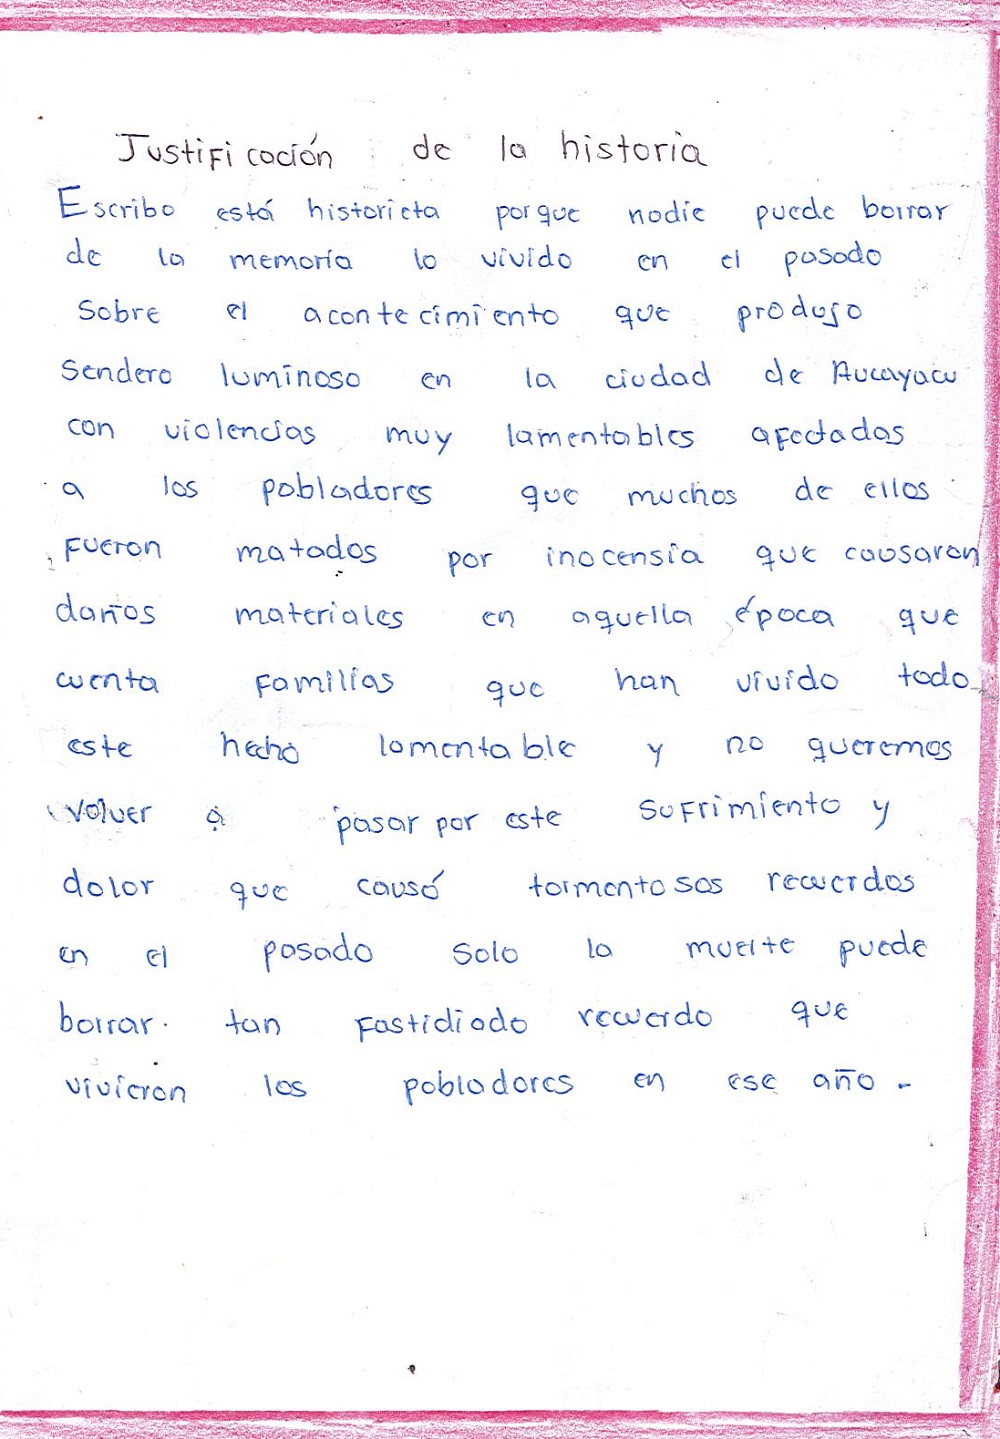 Justificación de la historia
Escribo está historieta porque nadie puede borrar
de la memoria lo vivido en el pasado
sobre el acontecimiento que produjo
Sendero luminoso en la ciudad de Aucayacu
con violencias muy lamentables afectadas
a los pobladores que muchos de ellos
fueron matados por inocensia que causaron
daños materiales en aquella época que
cuenta familias que han vivido todo
este hecho lamentable y no queremos
volver a pasar por este sufrimiento y
dolor que causó tormentosos recuerdos
en el pasado solo la muerte puede
borrar. tan fastidiado recuerdo que
vivieron los pobladores en ese año -